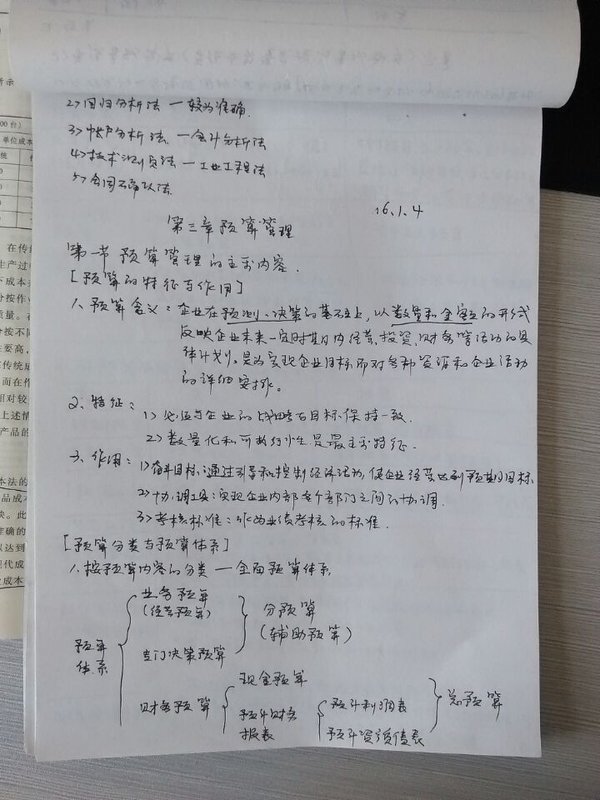 2> 回归分析法 — 较为准确.
3> 帐户分析法. — 会计分析法
4> 技术测定法 — 工业工程法
5> 合同确认法.
16.1.4
第三章 预算管理
第一节 预算管理的主要内容.
[预算的特征与作用]
1、预算含义: 企业在预测、决策的基础上, 以数量和金额的形式
反映企业未来一定时期内经营、投资、财务等活动的具
体计划. 是为实现企业目标而对各种资源和企业活动
的详细安排。
2、特征:
1> 必须与企业的战略与目标保持一致.
2> 数量化和可执行性是最主要特征.
3、作用: 1> 奋斗目标: 通过引导和控制经济活动, 使企业经营达到预期目标
2> 协调工具: 实现企业内部各个部门之间的协调.
3> 考核标准: 作为业绩考核的标准.
[预算分类与预算体系]
1、按预算内容的分类 — 全面预算体系
业务预算
(经营预算)
分预算
(辅助预算)
专门决策预算
预算
体系
现金预算
财务预算
预计财务
报表
预计利润表
预计资产负债表
总预算
单位成本
在传统
生产过
分按作业
质量。在
分按不同
传统成
而在作
相对较
上述情
产品的
准确的
以达到
现代成
业成本